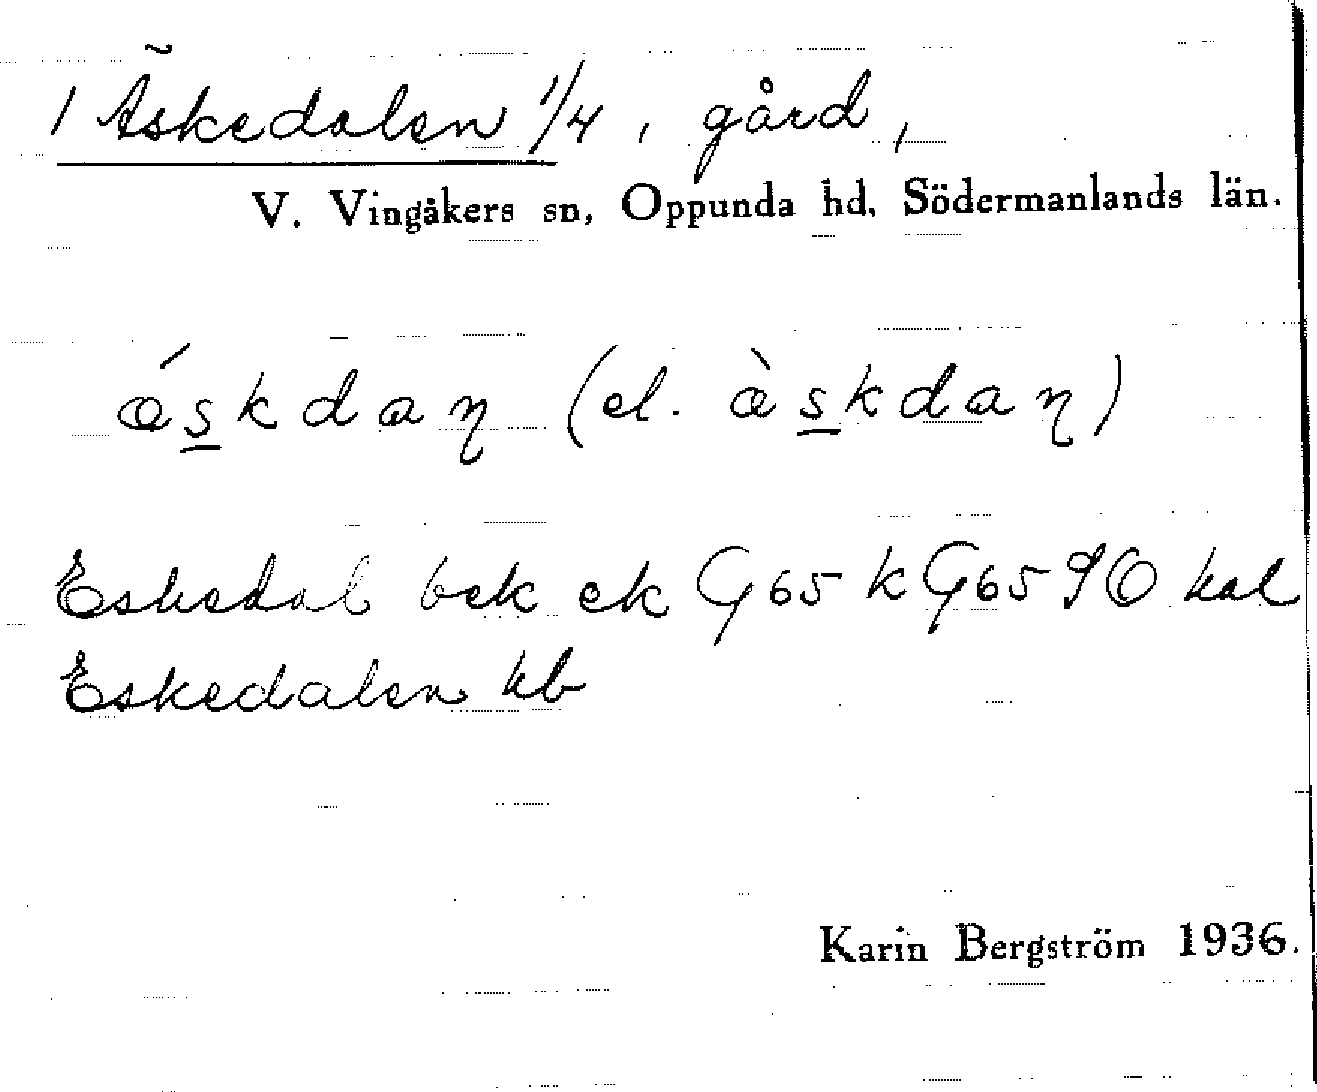 1 Äskedalen 1/4, gård,
V. Vingåkers sn, Oppunda hd, Södermanlands län.
áskdaŋ (el. àskdaŋ)
Eskedal bek ek G 65 k G 65 90 kal
Eskedalen kb
Karin Bergström 1936.